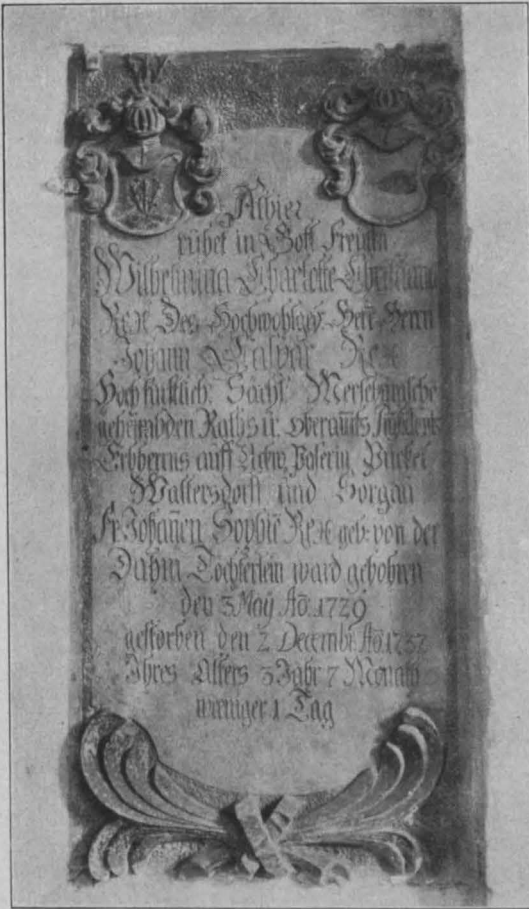 Alhier
ruhet in Gott Freuln
Wilhelmina Charlotte Christiana
Rex Des Hochwohlgeb. Herr Herrn
Johann Caspar Rex
Hochfürstlich. Sächs. Merseburgische
Raths u. oberamts
Erbherrns auff Pückel
Waltersdorff und
Fr. Johañen Sophie Rex geb. von der
Dahm Tochterlein ward gebohren
den 3 May Ao. 1729
gestorben den 2 Decembr. Ao 1732
Ihres Alters 3 Jahr 7 Monath
weniger 1 Tag